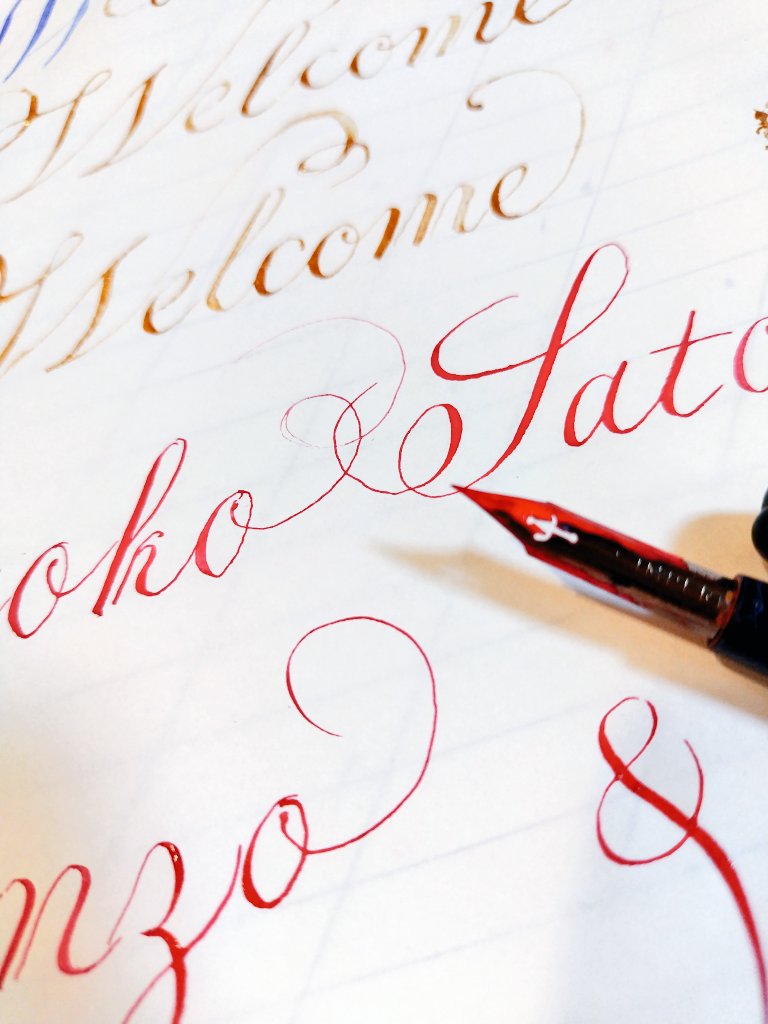 Welcome
Welcome
oko Sato
nzo &